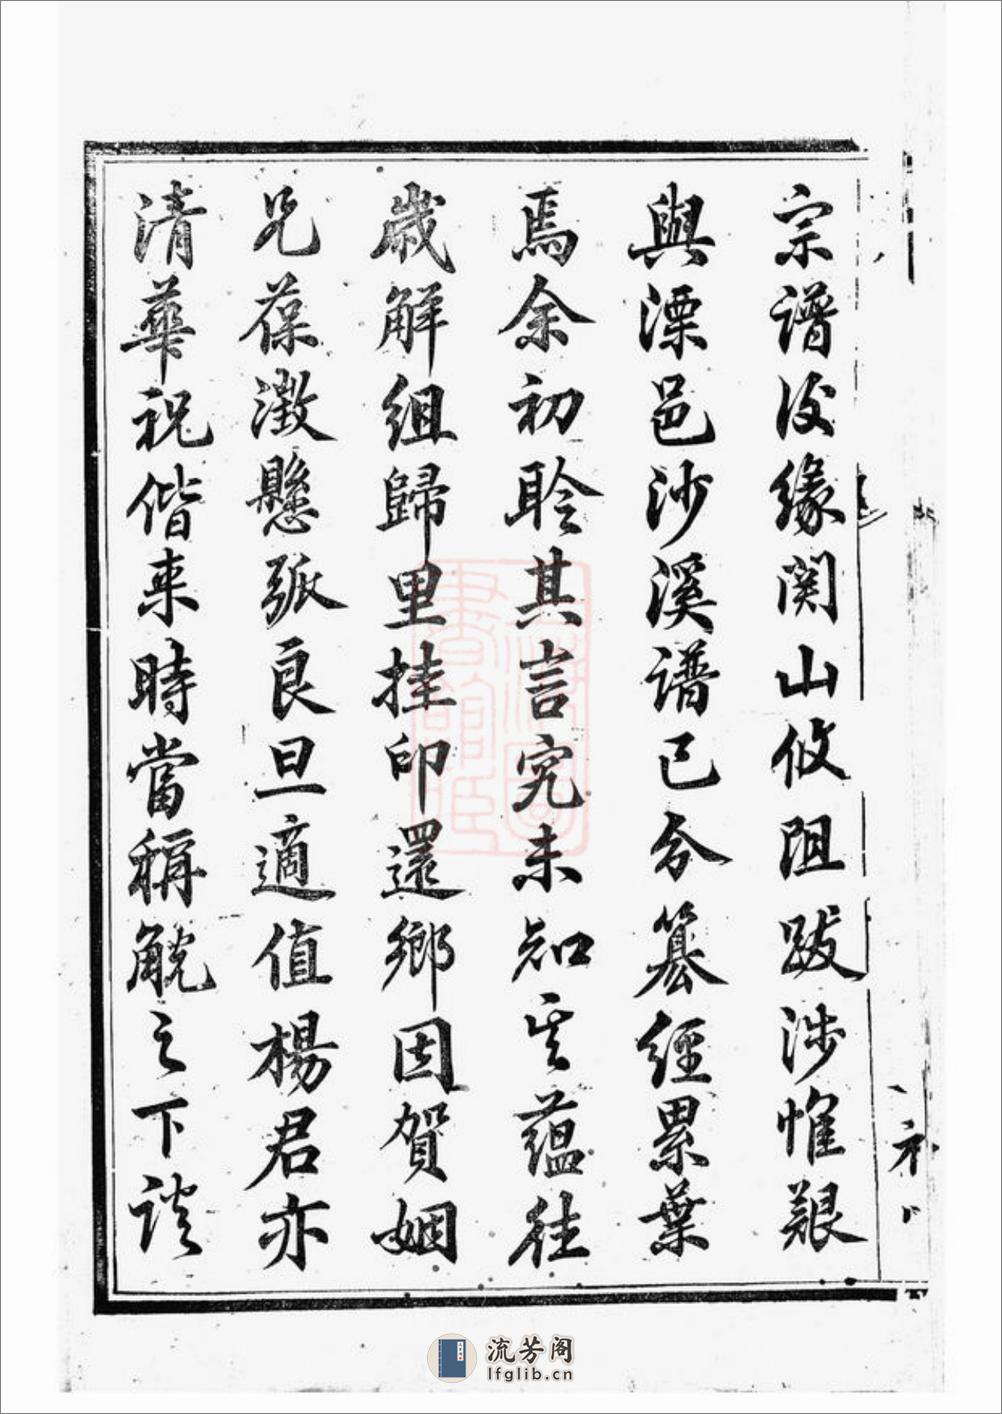 宗譜後緣関山攸阻跋涉惟艱
與溧邑沙溪譜已分纂經累葉
焉余初聆其言究未知其蘊往
歲解組歸里挂印還鄉因賀姻
兄葆澂懸弧良旦適值楊君亦
清華祝偕来時當稱觥之下談
流芳阁
lfglib.cn